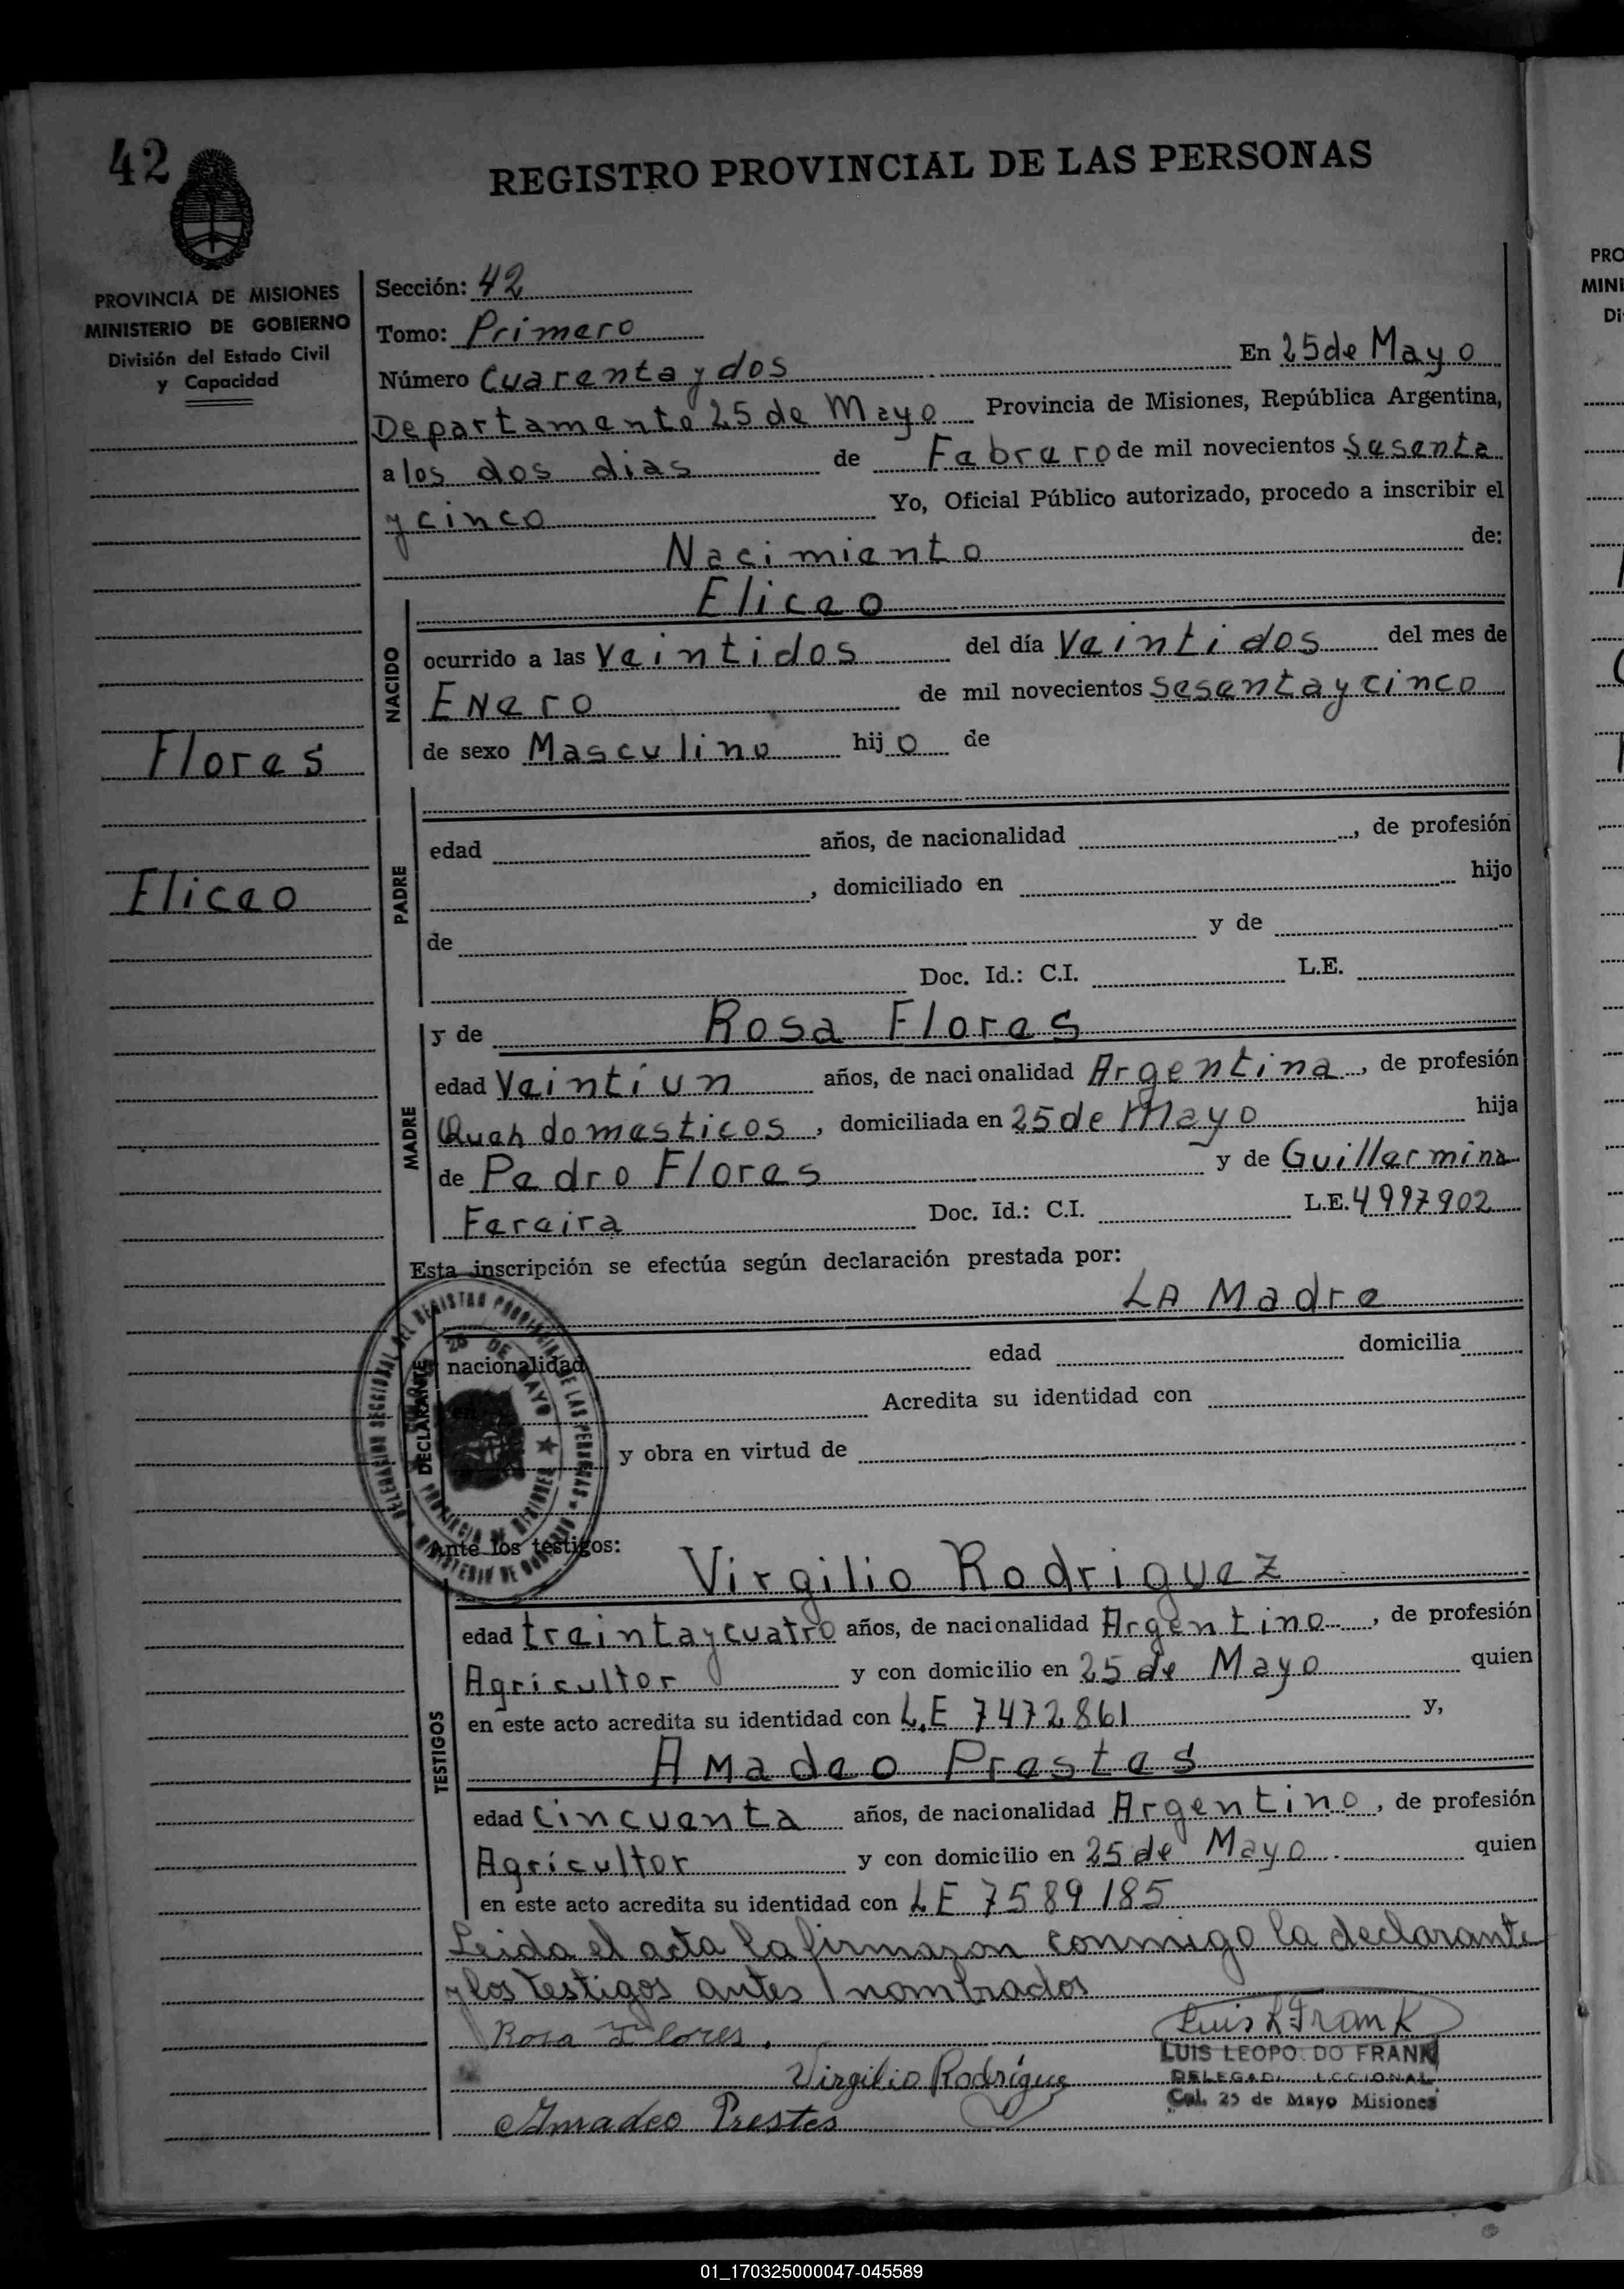 42
REGISTRO PROVINCIAL DE LAS PERSONAS
PROVINCIA DE MISIONES
MINISTERIO DE GOBIERNO
División del Estado Civil
y Capacidad
Flores
Eliceo
Sección: 42
Tomo: Primero
Número Cuarenta y dos En 25 de Mayo
Departamento 25 de Mayo Provincia de Misiones, República Argentina,
a los dos dias de Febrero de mil novecientos Sesenta
y cinco Yo, Oficial Público autorizado, procedo a inscribir el
Nacimiento de:
NACIDO
Eliceo
ocurrido a las Veintidos del día Veintidos del mes de
Enero de mil novecientos Sesenta y cinco
de sexo Masculino hijo de
PADRE
edad años, de nacionalidad , de profesión
, domiciliado en hijo
de y de
Doc. Id.: C.I. L.E.
MADRE
y de Rosa Flores
edad Veintiun años, de nacionalidad Argentina, de profesión
Queh domesticos, domiciliada en 25 de Mayo hija
de Pedro Flores y de Guillermina
Fereira Doc. Id.: C.I. L.E. 4997902
Esta inscripción se efectúa según declaración prestada por:
LA Madre
DECLARANTE
nacionalidad edad domicilia
en Acredita su identidad con
y obra en virtud de
DELEGACION SECCIONAL DEL REGISTRO PROVINCIAL DE LAS PERSONAS
25 DE MAYO
PROVINCIA DE MISIONES
MINISTERIO DE GOBIERNO
Ante los testigos:
TESTIGOS
Virgilio Rodriguez
edad treinta y cuatro años, de nacionalidad Argentino, de profesión
Agrícultor y con domicilio en 25 de Mayo quien
en este acto acredita su identidad con L.E 7472861 y,
Amadeo Prestes
edad Cincuenta años, de nacionalidad Argentino, de profesión
Agrícultor y con domicilio en 25 de Mayo quien
en este acto acredita su identidad con LE 7589185
Leida el acta la firmaron conmigo la declarante
y los testigos antes nombrados
Rosa Flores.
Luis L Frank
LUIS LEOPO DO FRANK
Virgilio Rodrígue
Col. 25 de Mayo Misiones
Amadeo Prestes
PRO
MINI
Di
01_170325000047-045589